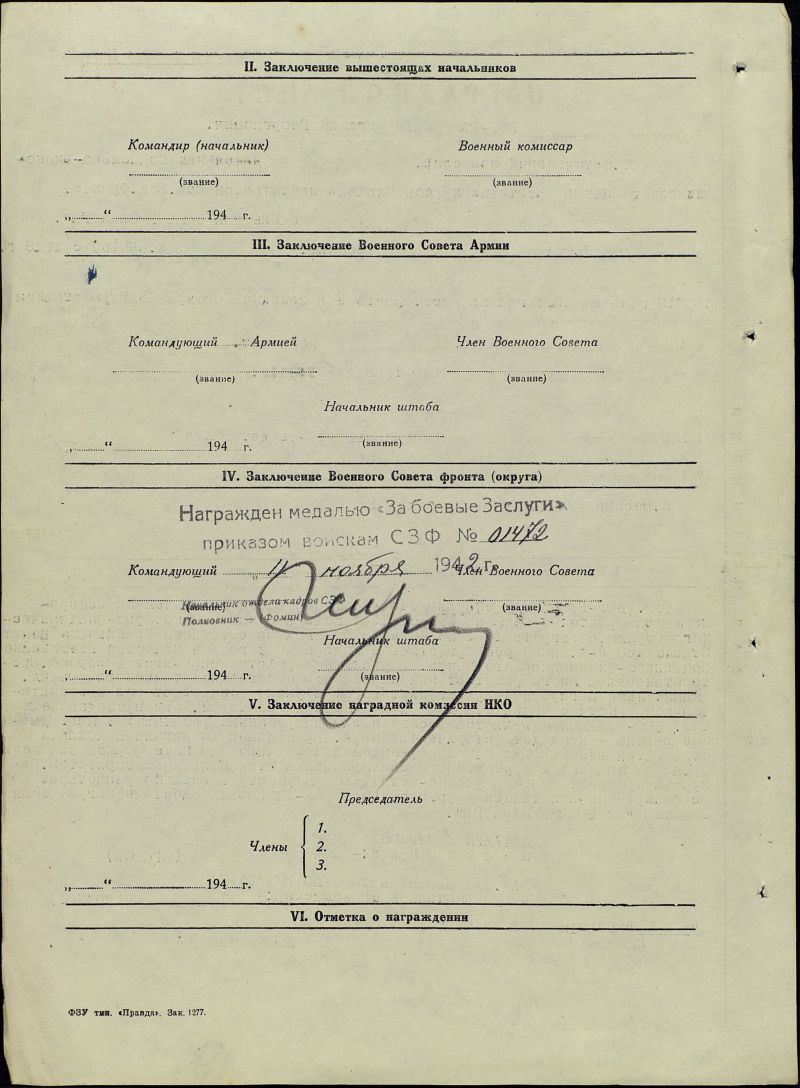 II. Заключение вышестоящих начальников
Командир (начальник) Военный комиссар
(звание) (звание)
„ “ 194 г.
III. Заключение Военного Совета Армии
Командующий Армией Член Военного Совета
(звание) (звание)
Начальник штаба
(звание)
„ “ 194 г.
IV. Заключение Военного Совета фронта (округа)
Награжден медалью «За боевые Заслуги»
приказом войскам СЗФ № 01472
„ ноября 1942 г.
Командующий Член Военного Совета
(звание) (звание)
Начальник отдела кадров СЗФ
Полковник — (Фомин)
Начальник штаба
(звание)
„ “ 194 г.
V. Заключение наградной комиссии НКО
Председатель
Члены
1.
2.
3.
„ “ 194 г.
VI. Отметка о награждении
ФЗУ тип. «Правда». Зак. 1277.